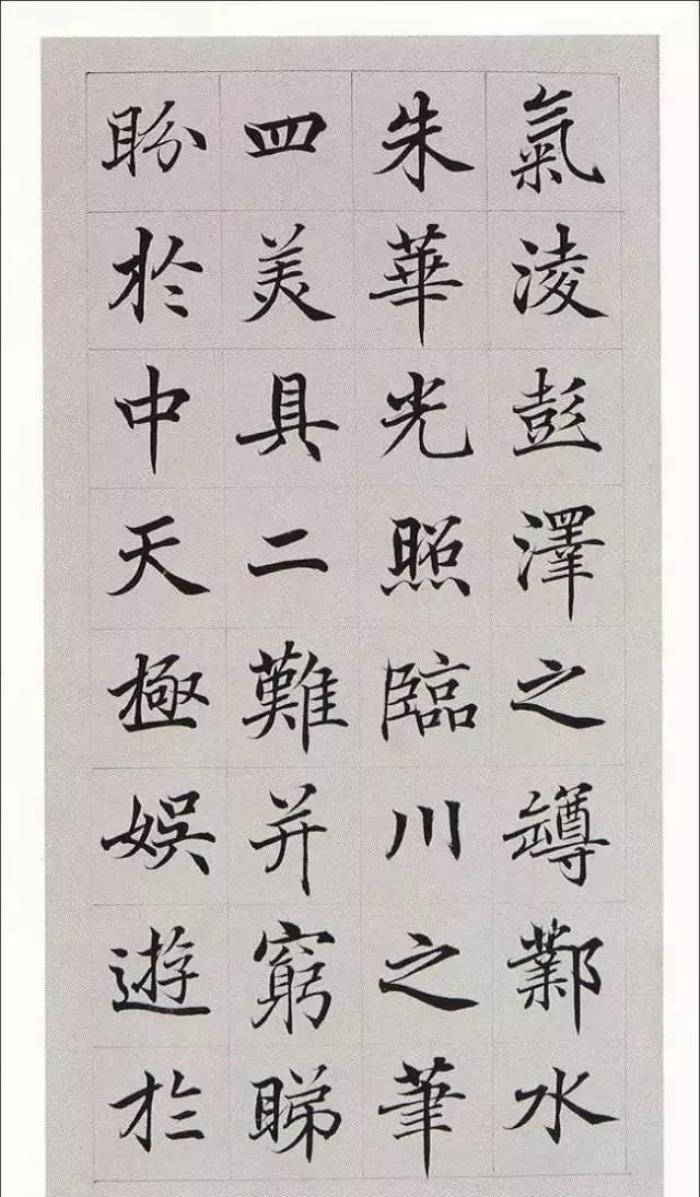 氣淩彭澤之罇鄴水
朱華光照臨川之筆
四美具二難并窮睇
盼於中天極娛遊於